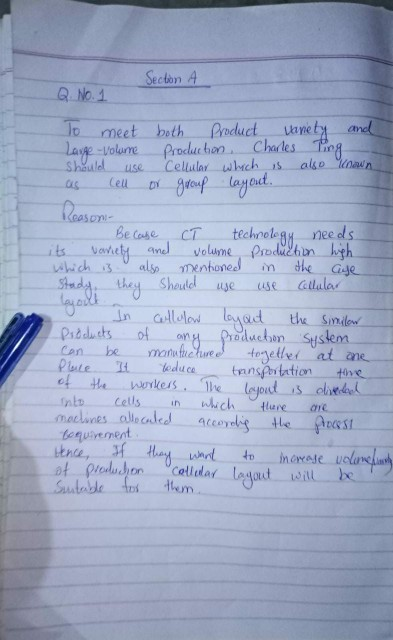 Section A
Q. No. 1
To meet both Product variety and
Large-volume Production. Charles Ting
should use Cellular which is also known
as cell or group layout.
Reason:-
Because CT technology needs
its variety and volume Production high
which is also mentioned in the case
study, they should use use cellular
layout.
In cellulow layout the similar
Products of any Production system
can be manufactured together at one
Place It reduce transportation time
of the workers. The layout is divided
into cells in which there are
machines allocated according the process
requirement.
Hence, If they want to increase volume
of production cellular layout will be
Suitable for them.